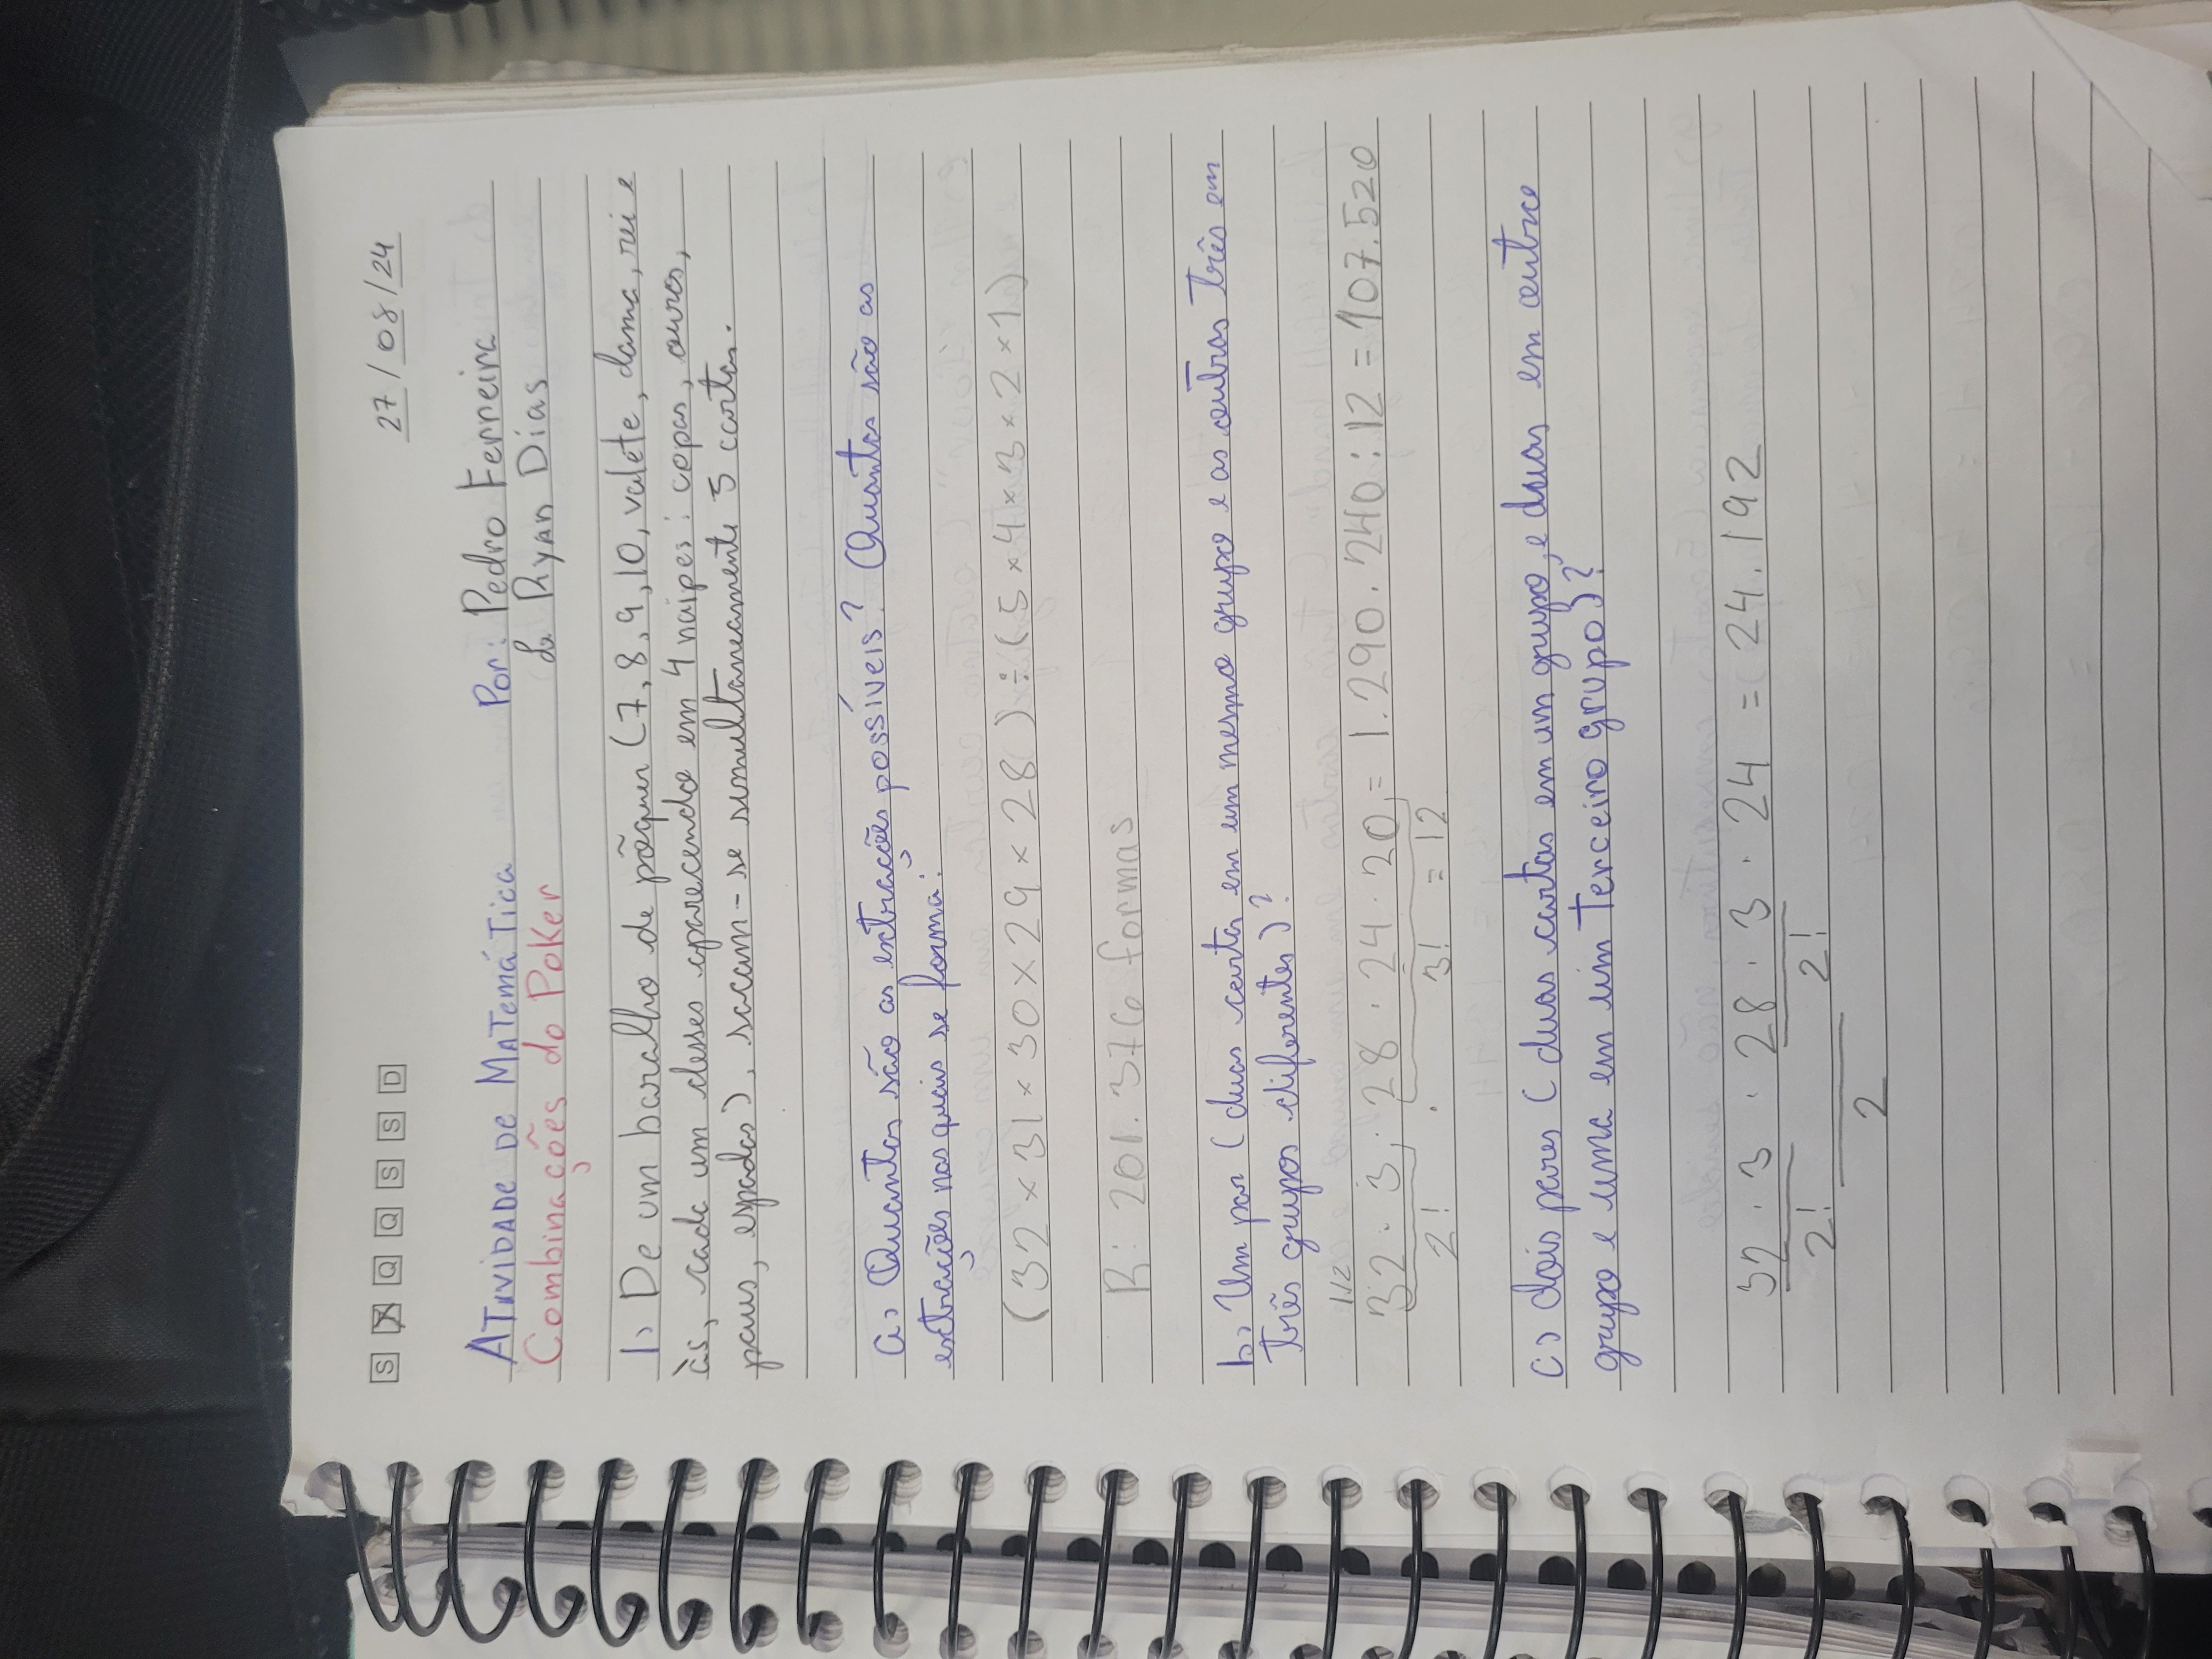 S T Q Q S S D
27/08/24
ATIVIDADE DE MATEMÁTICA Por: Pedro Ferreira
Combinações do Poker & Ryan Dias
1) De um baralho de pôquer (7, 8, 9, 10, valete, dama, rei e
às, cada um desses aparecendo em 4 naipes: copas, ouros,
paus, espadas), sacam-se simultaneamente 5 cartas.
a) Quantas são as extrações possíveis? (Quantas são as
extrações nas quais se forma:
(32 × 31 × 30 × 29 × 28) ÷ (5 × 4 × 3 × 2 × 1)
R: 201.376 formas
b) Um par (duas carta em um mesmo grupo e as outras três em
três grupos diferentes)?
32 · 3 · 28 · 24 · 20 = 1.290.240 : 12 = 107.520
2! · 3! = 12
c) dois pares (duas cartas em um grupo, e duas em outro
grupo e uma em um Terceiro grupo)?
32 · 3 · 28 · 3 · 24 = 24.192
2! 2!
2